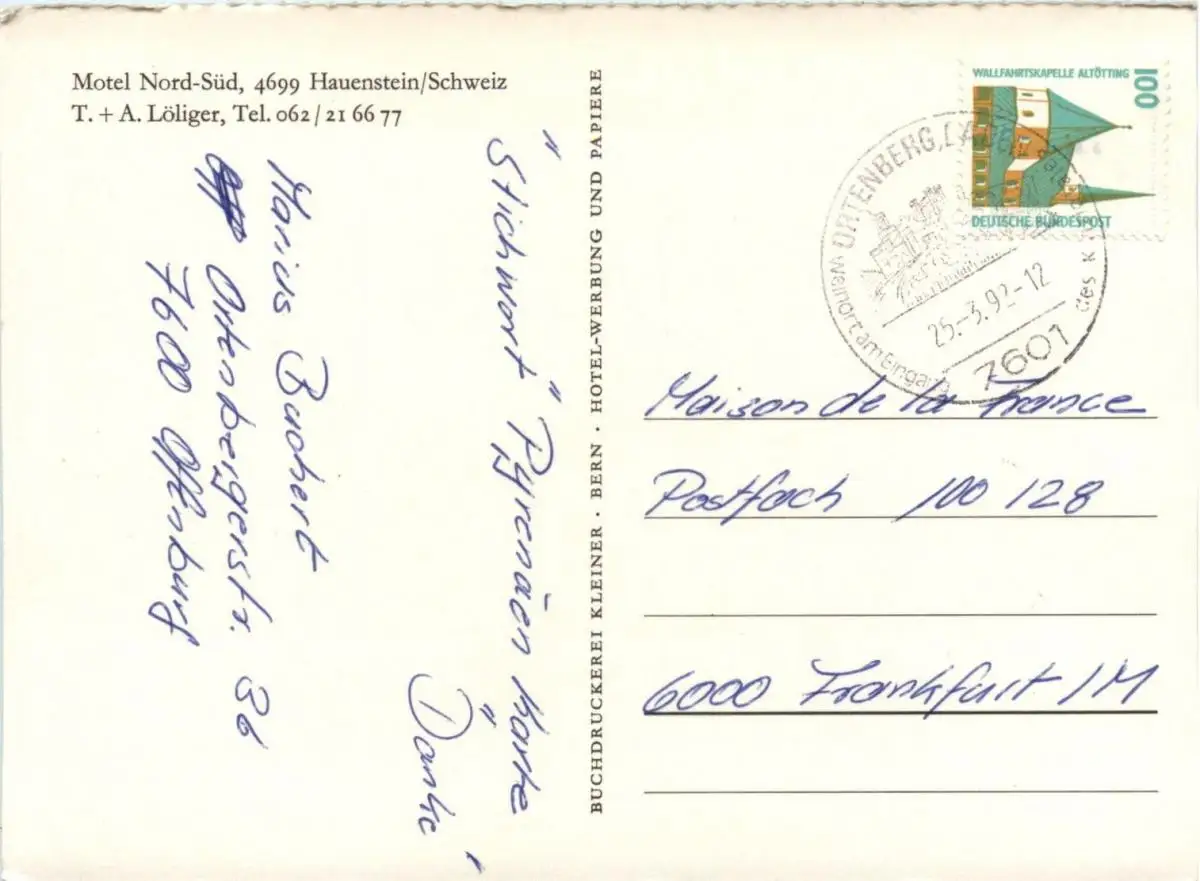 Motel Nord-Süd, 4699 Hauenstein/Schweiz
T. + A. Löliger, Tel. 062/21 66 77
"Stichwort" Pyrenäen Karte"
Danke
Marius Buchert
Ortenbergerstr. 36
7600 Offenburg
BUCHDRUCKEREI KLEINER · BERN · HOTEL-WERBUNG UND PAPIERE
WALLFAHRTSKAPELLE ALTÖTTING
100
DEUTSCHE BUNDESPOST
ORTENBERG,
25.-3.92-12
7601
Weinort am Eingang des K
Maison de la France
Postfach 100 128
6000 Frankfurt / M